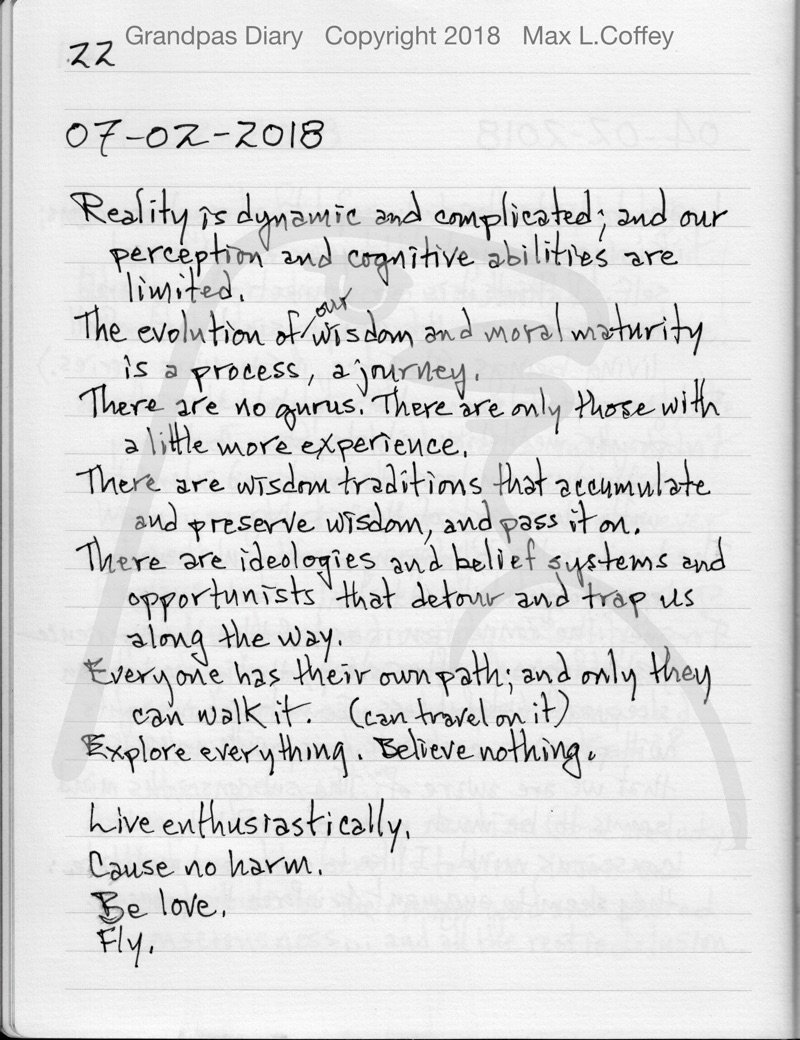 Grandpas Diary Copyright 2018 Max L.Coffey
22
07-02-2018
Reality is dynamic and complicated; and our
perception and cognitive abilities are
limited.
The evolution of our wisdom and moral maturity
is a process, a journey.
There are no gurus. There are only those with
a little more experience.
There are wisdom traditions that accumulate
and preserve wisdom, and pass it on.
There are ideologies and belief systems and
opportunists that detour and trap us
along the way.
Everyone has their own path; and only they
can walk it. (can travel on it)
Explore everything. Believe nothing.
Live enthusiastically.
Cause no harm.
Be love.
Fly.